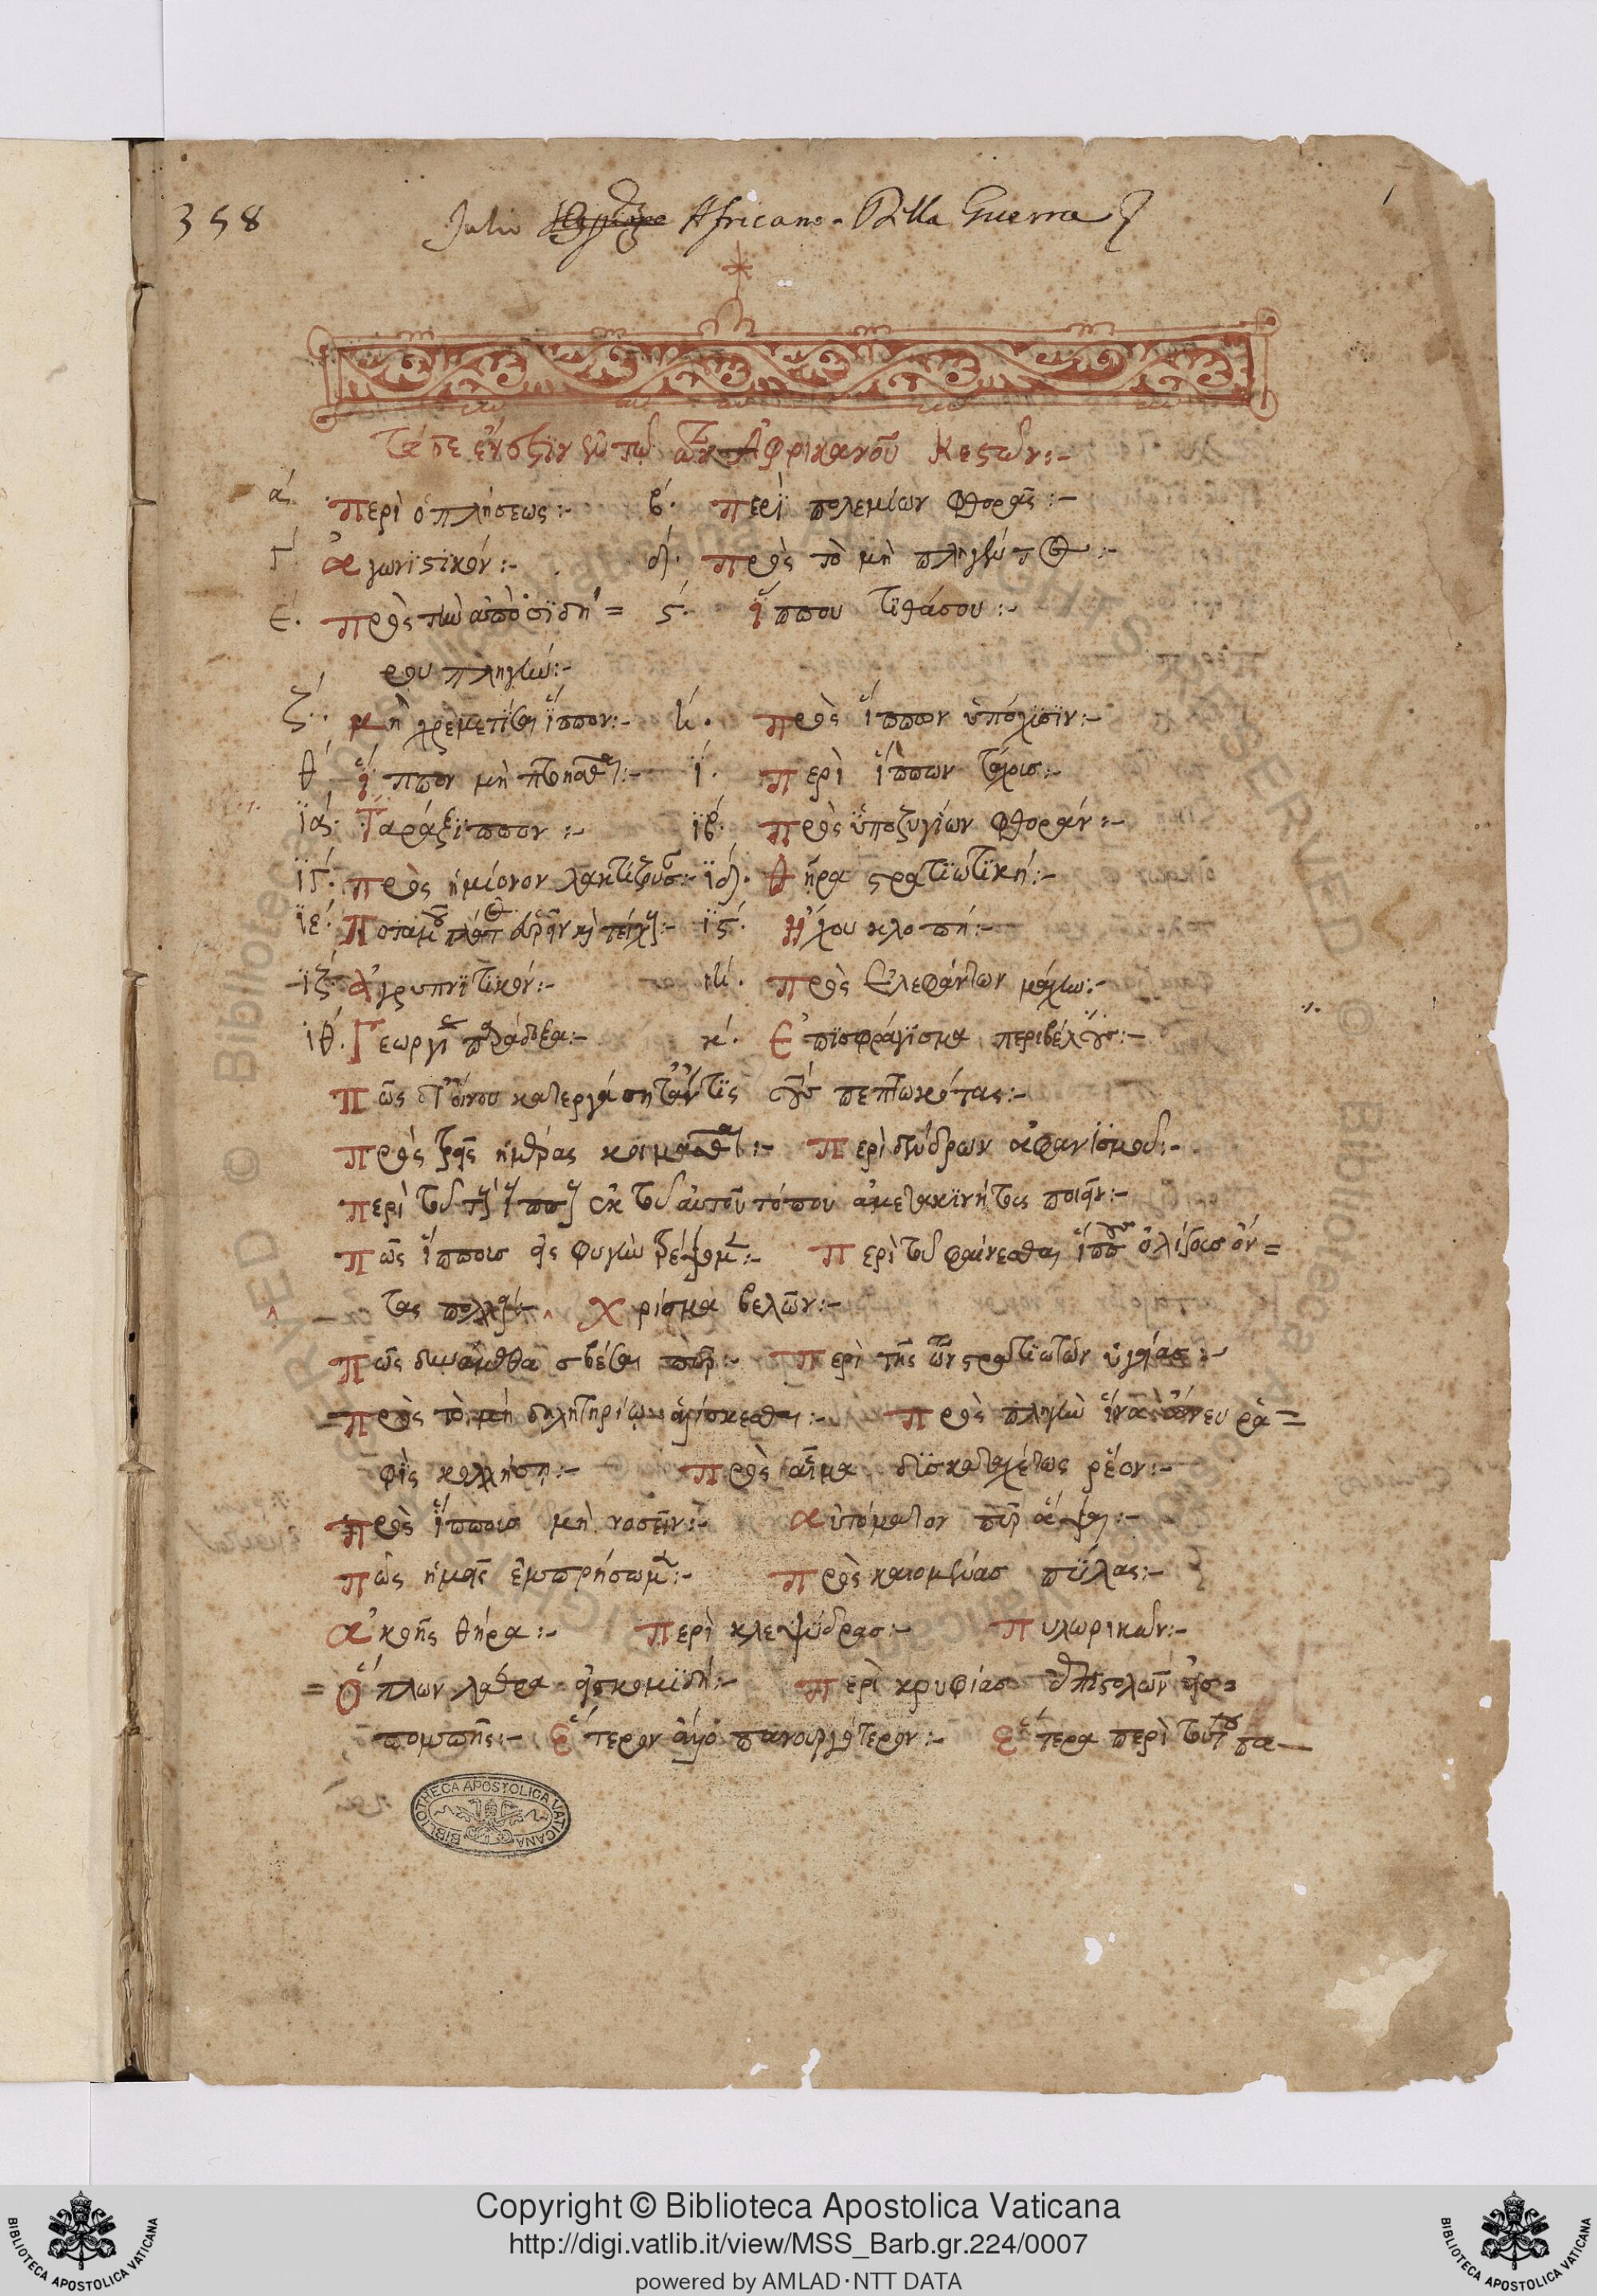 358
Julio Africano - Della Guerra
Τάδε ἔνεστιν ἐν τῷ τῶν Ἀφρικανοῦ Κεστῶν:-
ά. Περὶ ὁπλήσεως:- β΄. Περὶ πολεμίων φθορᾶς:-
γ΄. Ἀγωνιστικόν:- δ΄. Πρὸς τὸ μὴ πληγῆναι:-
έ. Πρὸς τὴν ἀπὸ σιδή= ϛ΄. Ἵππου τιθάσου:-
ρου πληγήν:-
ζ΄. μὴ χρεμετίσαι ἵππον:- ή. Πρὸς ἵππων ὑπόλυσιν:-
θ΄ Ἵππον μὴ πτοηθῆναι:- ί. Περὶ ἵππων
ϊά. Ταράξιππον:- ϊβ΄. Πρὸς ὑποζυγίων φθοράν:-
ϊγ΄. Πρὸς ἡμίονον λακτίζουσαν:- ϊδ΄. Θήρα στρατιωτική:-
ϊέ. Ποταμοῦ καὶ τείχη:- ϊϛ΄. Ἤχου κλοπή:-
ϊζ΄. Ἀγρυπνητικόν:- ιή. Πρὸς ἐλεφάντων μάχην:-
ϊθ΄. Γεωργι παράδοξα:- κ΄. Ἐπισφράγισμα περὶ βέλους:-
Πῶς δι' οἴνου κατεργάσηταί τις τοὺς πεπτωκότας:-
Πρὸς τρεῖς ἡμέρας κοιμᾶσθαι:- Περὶ δένδρων ἀφανισμοῦ:-
Περὶ τοῦ τοὺς ἵππους ἐκ τοῦ αὐτοῦ τόπου ἀμετακινήτους ποιεῖν:-
Πῶς ἵππους εἰς φυγὴν τρέψομεν:- Περὶ τοῦ φαίνεσθαι ἵππους ὀλίγους ὄν=
τας πολλούς:- Χρίσμα βελῶν:-
Πῶς δυνάμεθα σβέσαι πῦρ:- Περὶ τῆς τῶν στρατιωτῶν ὑγείας:-
Πρὸς τὸ μὴ δηλητηρίῳ ἁλίσκεσθαι:- Πρὸς πληγὴν ἵνα ἄνευ ῥα=
φῆς κολλήσῃ:- Πρὸς αἷμα δυσκαταλείπτως ῥέον:-
Πρὸς ἵππους μὴ νοσεῖν:- Αὐτόματον πῦρ ἅψαι:-
Πῶς ἡμᾶς ἐμπρήσωμεν:- Πρὸς καιομένας πύλας:-
Ἀκοῆς θήρα:- Περὶ κλεψύδρας:- Πυλωρικῶν:-
Ὅπλων λάθρα εἰσκομιδή:- Περὶ κρυφίας ἐπιστολῶν εἰσ=
πομπῆς:- Ἕτερον ἄλλο πανουργότερον:- Ἕτερα περὶ τούτου πα—
BIBLIOTHECA APOSTOLICA VATICANA
Copyright © Biblioteca Apostolica Vaticana
http://digi.vatlib.it/view/MSS_Barb.gr.224/0007
powered by AMLAD·NTT DATA
BIBLIOTECA APOSTOLICA VATICANA
BIBLIOTECA APOSTOLICA VATICANA